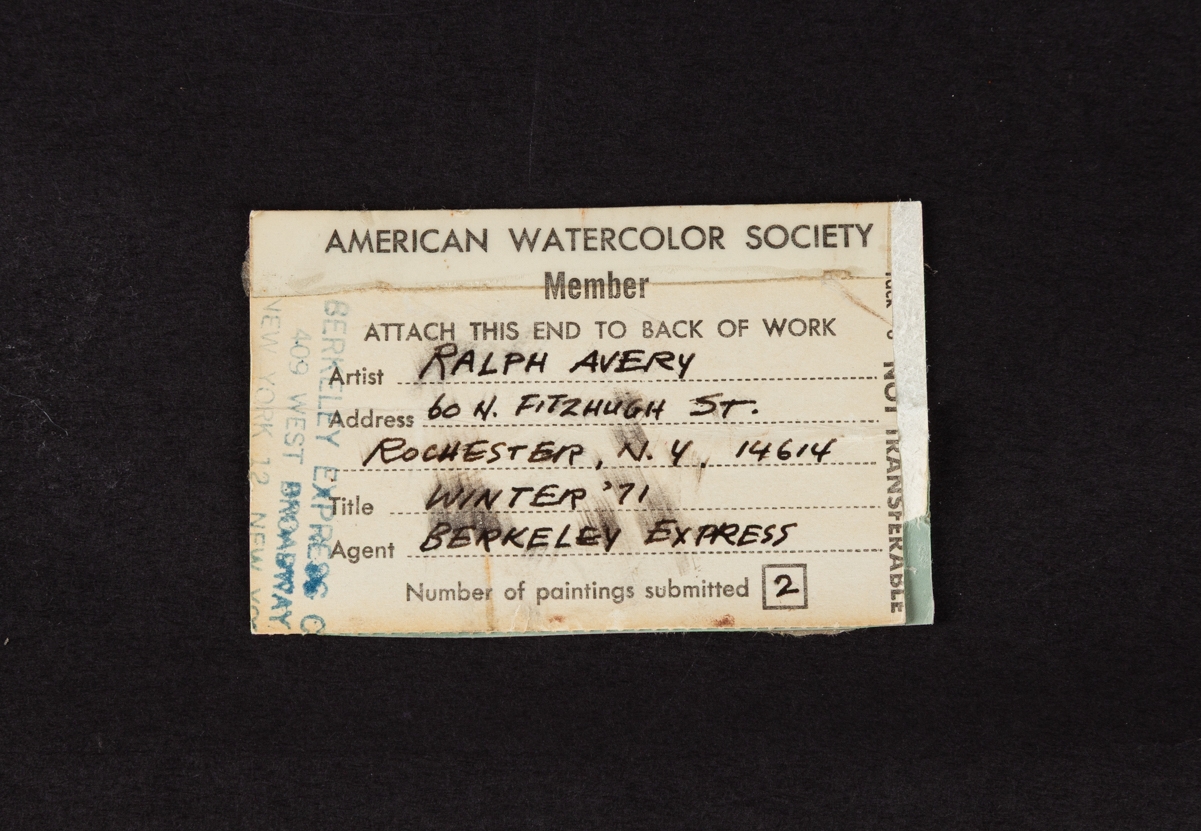 AMERICAN WATERCOLOR SOCIETY
Member
ATTACH THIS END TO BACK OF WORK
Artist RALPH AVERY
Address 60 N. FITZHUGH ST.
ROCHESTER, N.Y. 14614
Title WINTER '71
Agent BERKELEY EXPRESS
Number of paintings submitted 2
BERKELEY EXPRESS C
409 WEST BROADWAY
NEW YORK 12 NEW YO
NOT TRANSFERABLE